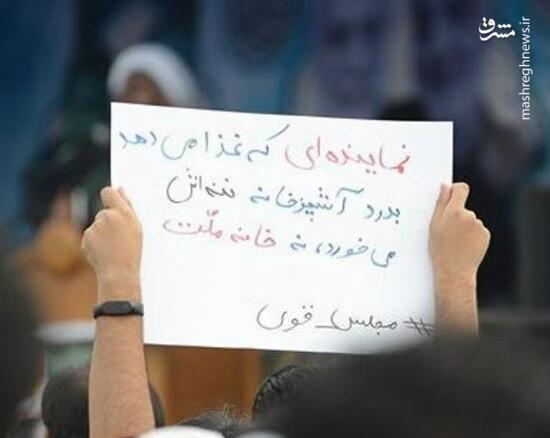 مشرق
mashreghnews.ir
نماینده‌ای که غذا می‌دهد
بدرد آشپزخانه ننه‌اش
می‌خورد، نه خانه ملّت
#مجلس_قوی